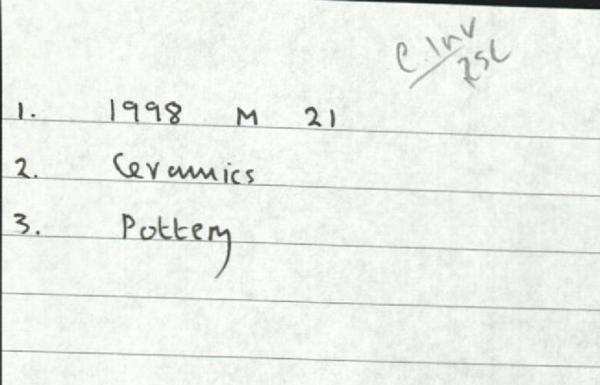 C. Inv
RSC
1. 1998 M 21
2. Ceramics
3. Pottery